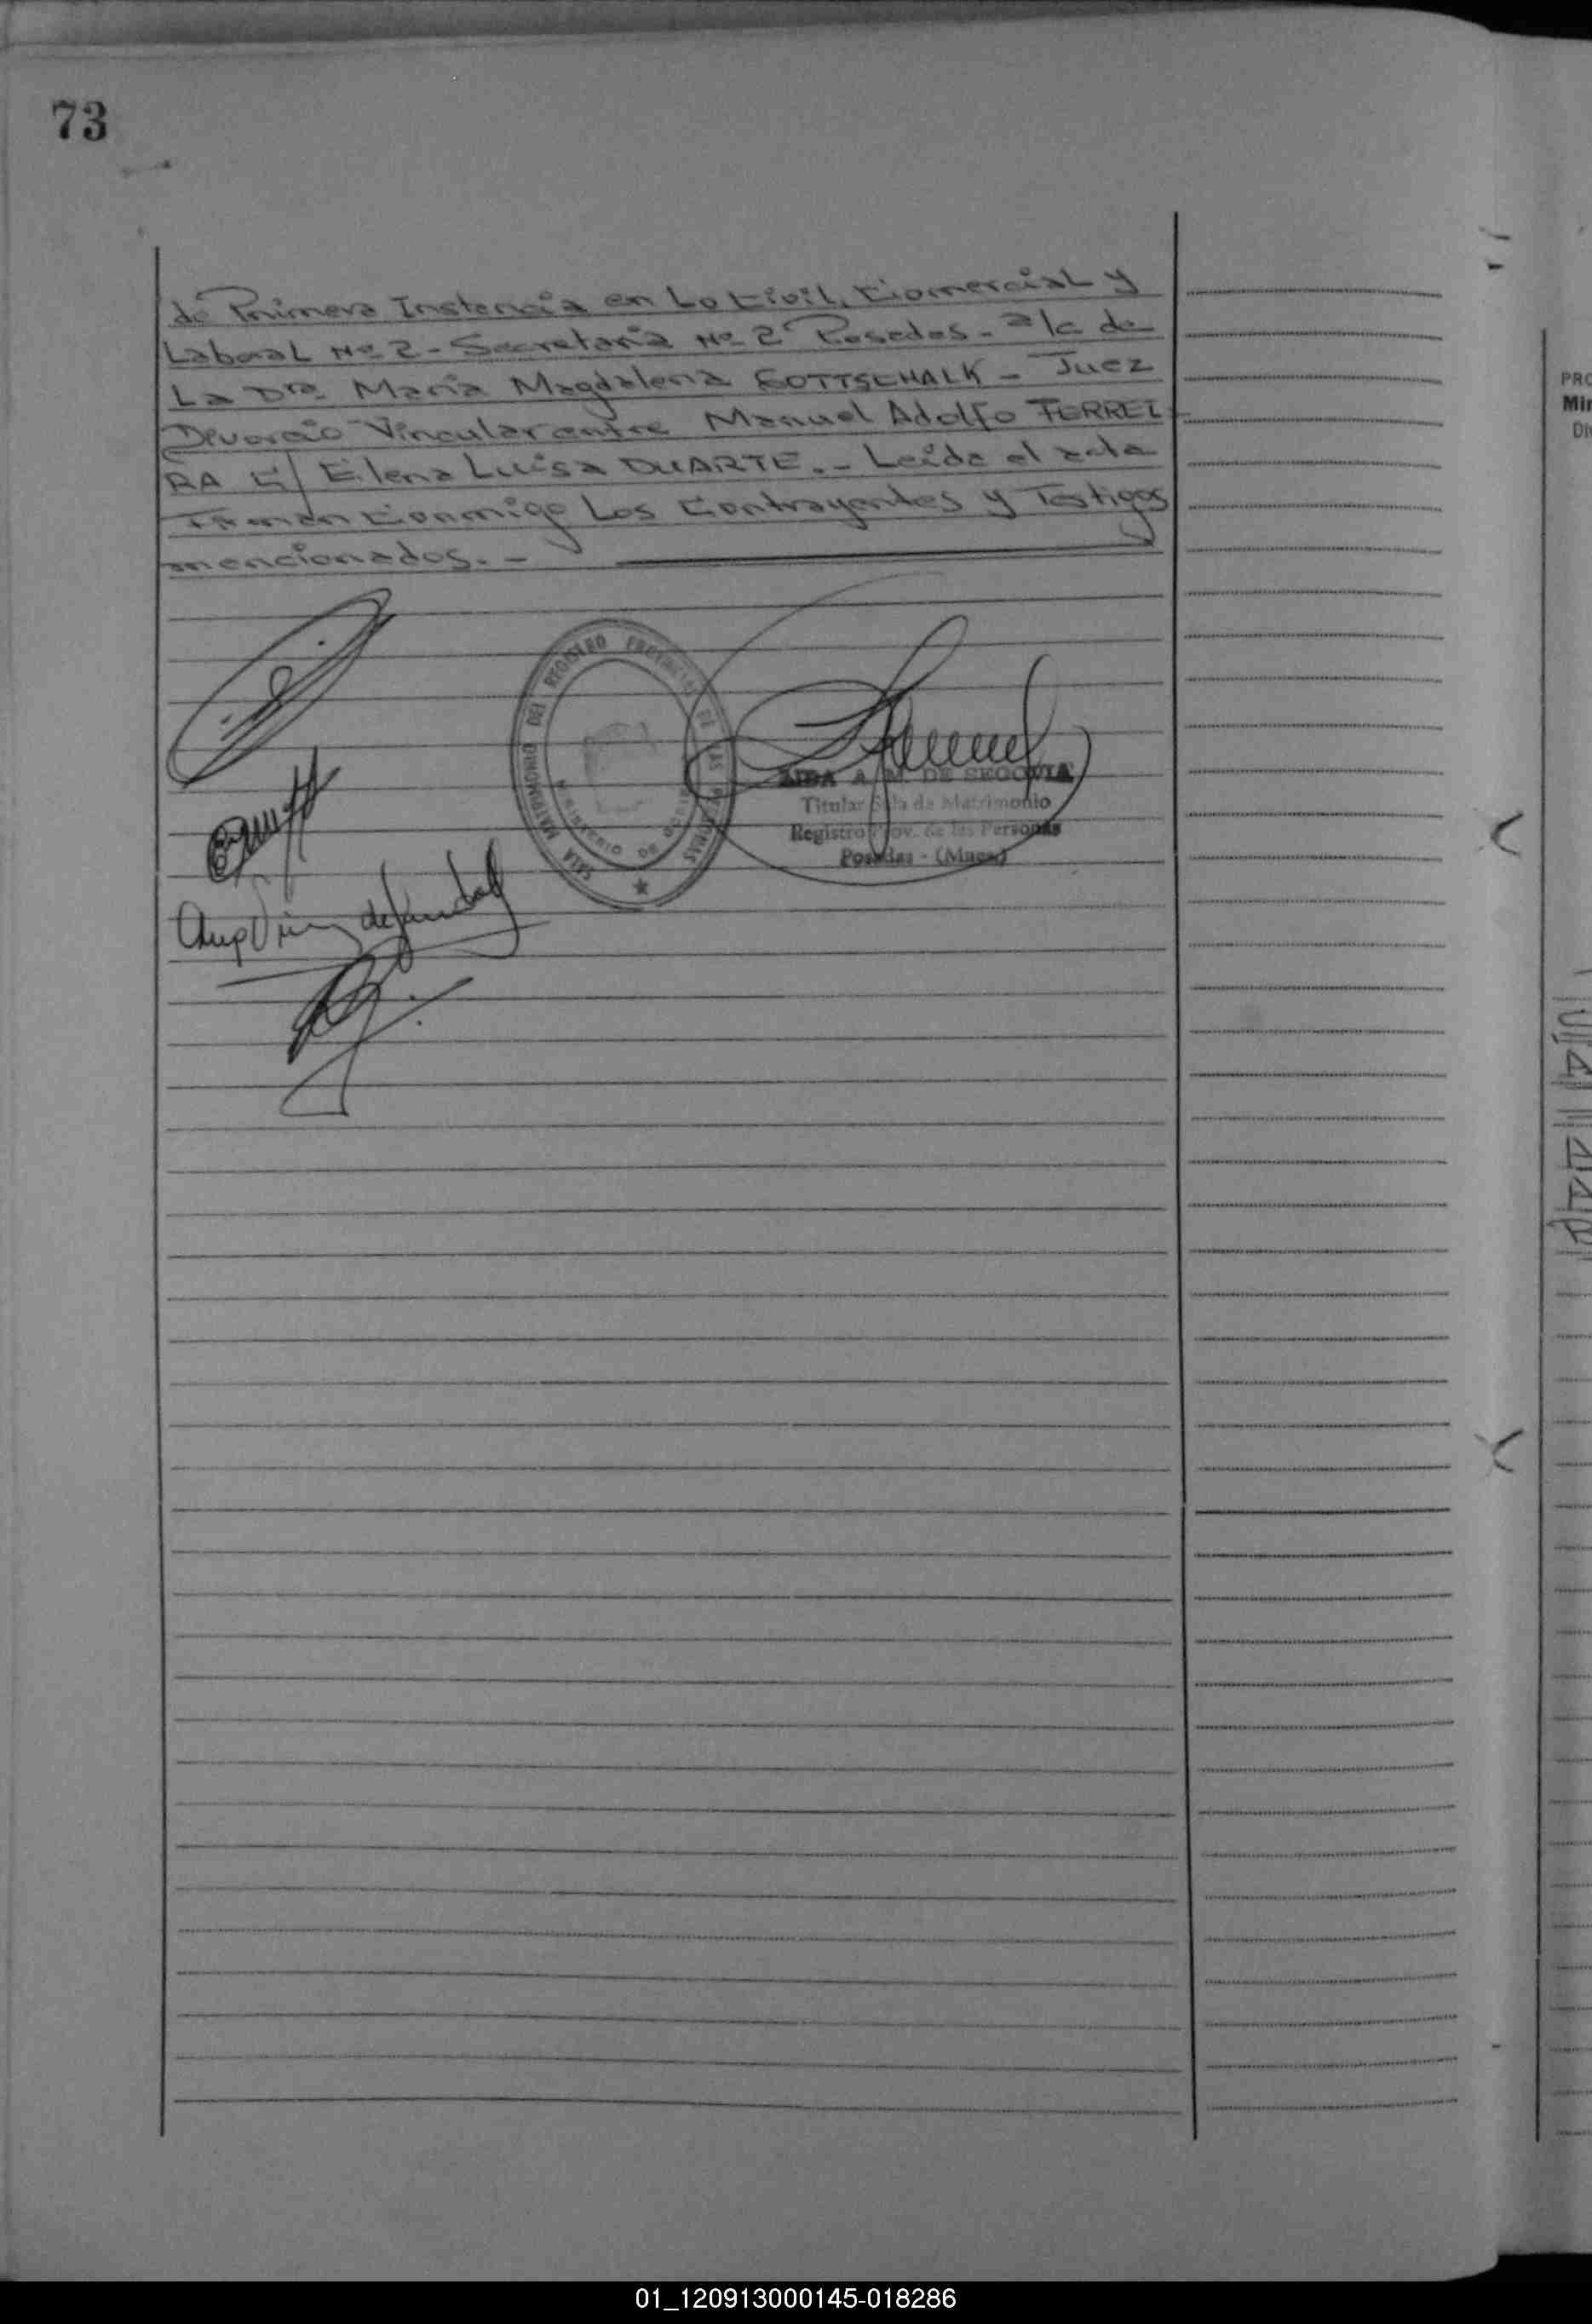 73
de Primera Instancia en Lo Civil, Comercial y
Laboral Nº 2 - Secretaria Nº 2 Posadas - a/c de
La Dra María Magdalena GOTTSCHALK - Juez
Divorcio Vincular entre Manuel Adolfo FERREI
RA C/ Elena Luisa DUARTE. - Leída el acta
Firman Conmigo Los Contrayentes y Testigos
mencionados. -
SALA MATRIMONIO DEL REGISTRO PROVINCIAL DE LAS PERSONAS
MINISTERIO DE
A. M. DE SEGOVIA
Titular Sala de Matrimonio
Registro Prov. de las Personas
Posadas - (Mnes)
PRO
Min
Di
01_120913000145-018286